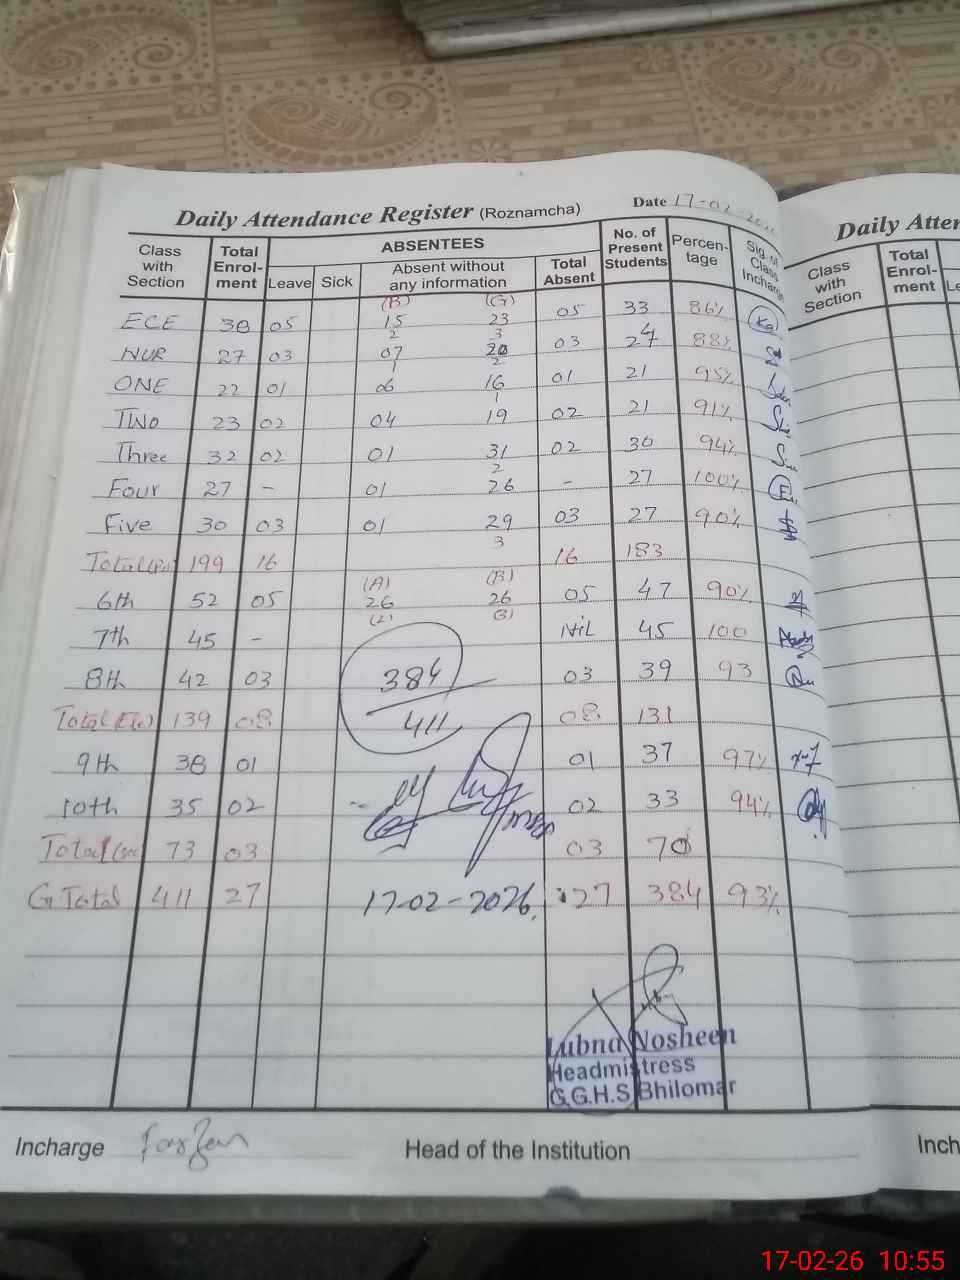 Daily Attendance Register (Roznamcha) Date 17-02-2026
Class with Section Total Enrol- ment ABSENTEES No. of Present Students Percen- tage Sig. of Class Incharge
Leave Sick Absent without any information Total Absent
(B) (G)
ECE 38 05 15 23 05 33 86%
2 3
NUR 27 03 07 20 03 24 88%
1 2
ONE 22 01 06 16 01 21 95%
1
TWO 23 02 04 19 02 21 91%
Three 32 02 01 31 02 30 94%
2
Four 27 - 01 26 - 27 100%
Five 30 03 01 29 03 27 90%
3
Total (Pri) 199 16 16 183
(A) (B)
6th 52 05 26 26 05 47 90%
(2) (3)
7th 45 - Nil 45 100
8th 42 03 384 03 39 93
Total (Ele) 139 08 411 08 131
9th 38 01 01 37 97%
10th 35 02 02 33 94%
Total (sec) 73 03 03 70
G.Total 411 27 17-02-2026 27 384 93%
Lubna Nosheen
Headmistress
G.G.H.S Bhilomar
Incharge Head of the Institution
Daily Atten
Class with Section Total Enrol- ment Le
Inch
17-02-26 10:55